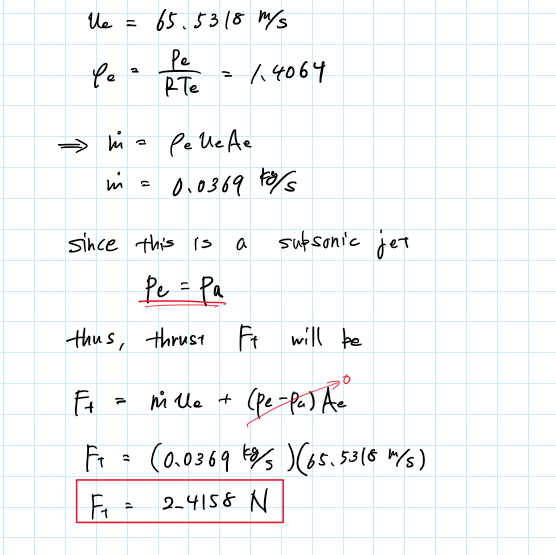 ue = 65.5318 m/s
ρe = pe/RTe = 1.4064
⇒ ṁ = ρe ue Ae
ṁ = 0.0369 kg/s
since this is a subsonic jet
pe = pa
thus, thrust Ft will be
Ft = ṁ ue + (pe-pa) Ae 0
Ft = (0.0369 kg/s)(65.5318 m/s)
Ft = 2.4158 N